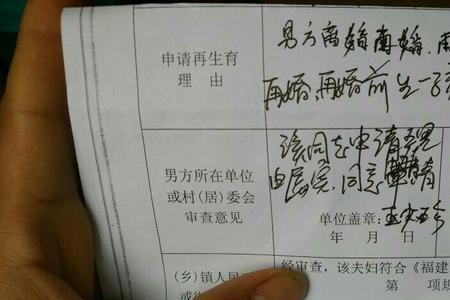 申请再生育
理 由
男方离婚再婚.
再婚,再婚前生一子
男方所在单位
或村(居)委会
审查意见
该同志申请
由属实.同意 请
单位盖章:
年 月 日
(乡)镇人民
经审查,该夫妇符合《福建
第 项规